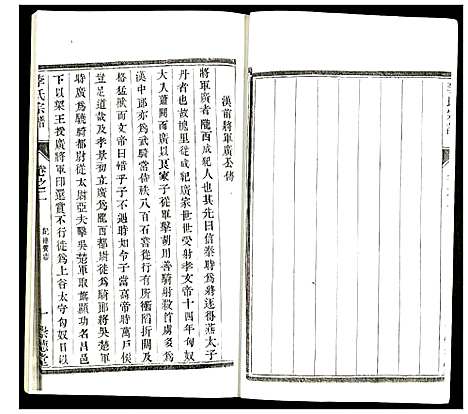 李氏宗譜
漢前將軍廣公傳
將軍廣者隴西成紀人也其先曰信秦時為將逐得燕太子
丹者也故槐里徙成紀廣家世世受射孝文十四年匈奴
大入蕭關而廣以良家子從軍擊胡用善騎射殺首虜多為
漢中郎亦為武騎常侍秩八百石嘗從行有所衝陷折關及
格猛獸而文帝曰惜乎子不遇時如當高帝時萬戶侯
孝景初立廣為隴西都尉徙為騎郎將吳楚軍
時廣為驍騎都尉從太尉亞夫擊吳楚軍取旗顯功名昌邑
下以梁王授廣將軍印還賞不行徙為上谷太守匈奴日以
李氏宗譜
卷之二
一